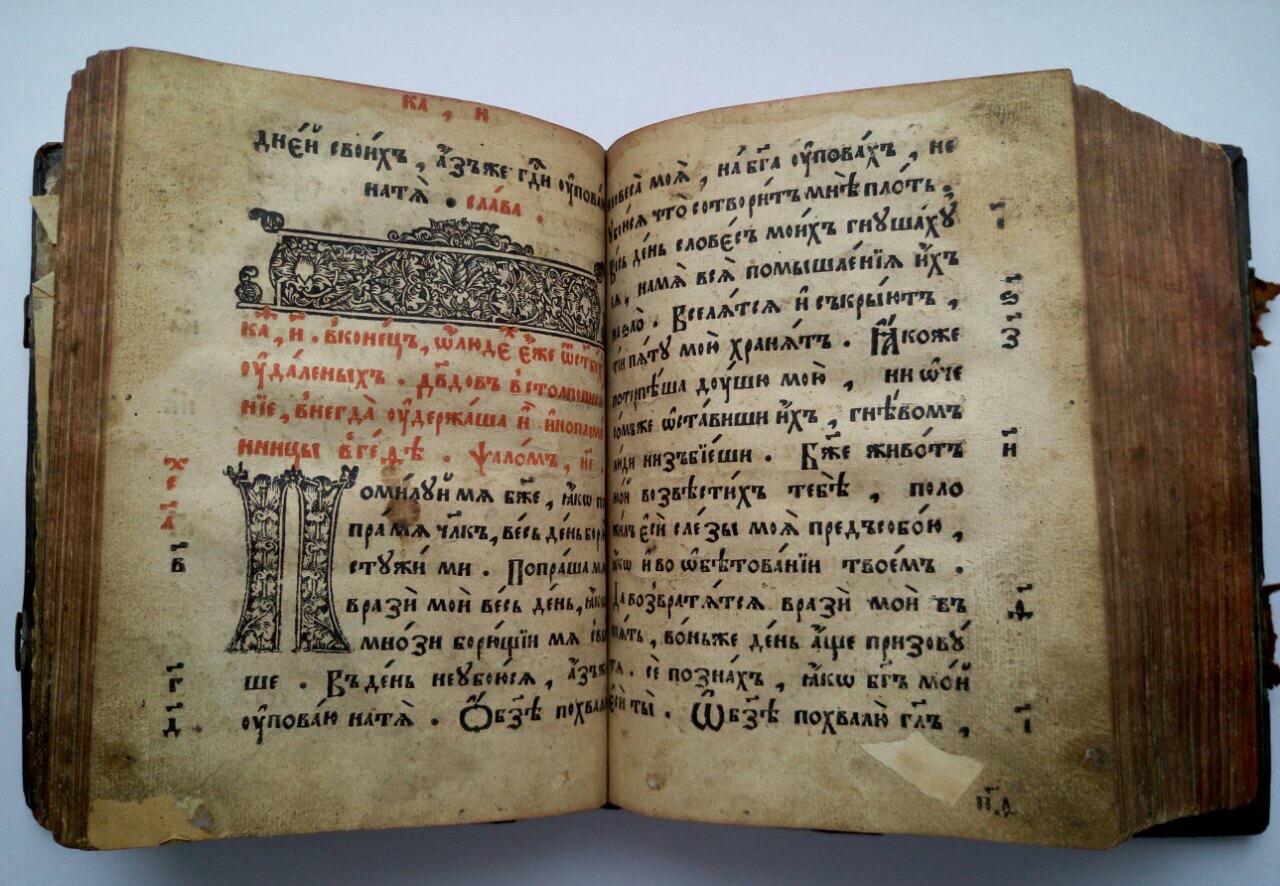 КА, И
дне́й свои́хъ, а҆́зъже гдⷭ҇и оу҆пова́
натѧ̀ . сла́ва .
КА, И . вконе́цъ, ѡ҆лю́дехъ е҆́же ѿст҃ы́хъ
оу҆дале́ныхъ . дв҃довъ встолпописа
нїе, внегда̀ оу҆держа́ша и҆̀ и҆нопле́ме
нницы вге́ѳѣ . ѱало́мъ, н҃е .
х҃е
л҃
Поми́луй мѧ бж҃е, ꙗ҆́кѡ по
пра́ мѧ чл҃къ, весь де́нь борѧ̀
в҃
стужи́ ми . Попра́ша мѧ
вразѝ моѝ весь де́нь, ꙗ҆́кѡ
мно́зи борю́щїи мѧ свы
г҃
ше . Въ де́нь неубою́сѧ, а҆́зъже
д҃
оу҆пова́ю натѧ̀ . Ѻ҆бз҃ѣ похвалю̀
словеса̀ моѧ̀, на бг҃а оу҆пова́хъ, не
убою́сѧ что̀ сотвори́тъ мнѣ пло́ть .
є҃
Весь де́нь слове́съ мои́хъ гнуша́ху
сѧ, намѧ̀ всѧ̀ помышле́нїѧ и҆́хъ
ѕ҃
на ѕло̀ . Вселѧ́тсѧ и҆ съкры́ютъ,
з҃
ті́и пѧ́ту мою̀ хранѧ́тъ . Ꙗ҆́коже
потерпѣ́ша дꙋ́шю мою̀, ни ѡ҆ че
со́мъже ѿста́виши и҆́хъ, гнѣ́вомъ
и҃
лю́ди низъбїе́ши . Бж҃е живо́тъ
мо́й возвѣсти́хъ тебѣ̀, поло
жи́лъ е҆сѝ сле́зы моѧ̀ предъсобо́ю,
ꙗ҆́кѡ и҆ во ѡ҆бѣтова́нїи твое́мъ .
ѳ҃
Да возвратѧ́тсѧ вразѝ моѝ въ
спѧ́ть, во́ньже де́нь а҆́ще призову́
тѧ . сѐ позна́хъ, ꙗ҆́кѡ бг҃ъ мо́й
і҃
е҆сѝ ты̀ . Ѡ҆ бз҃ѣ похвалю̀ гл҃ъ,